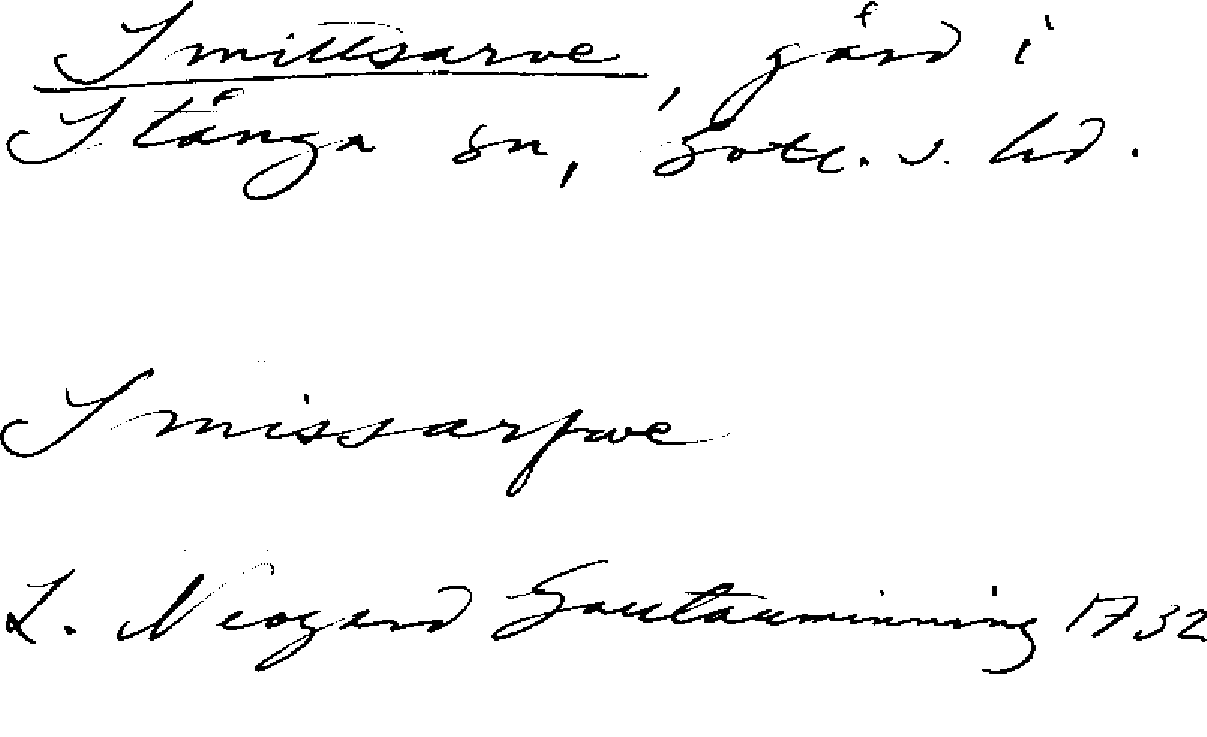 Smittsarve, gård i
Stånga sn, Gotl. s. hd.
Smissarfwe
L. Neogard Gautauminning 1732